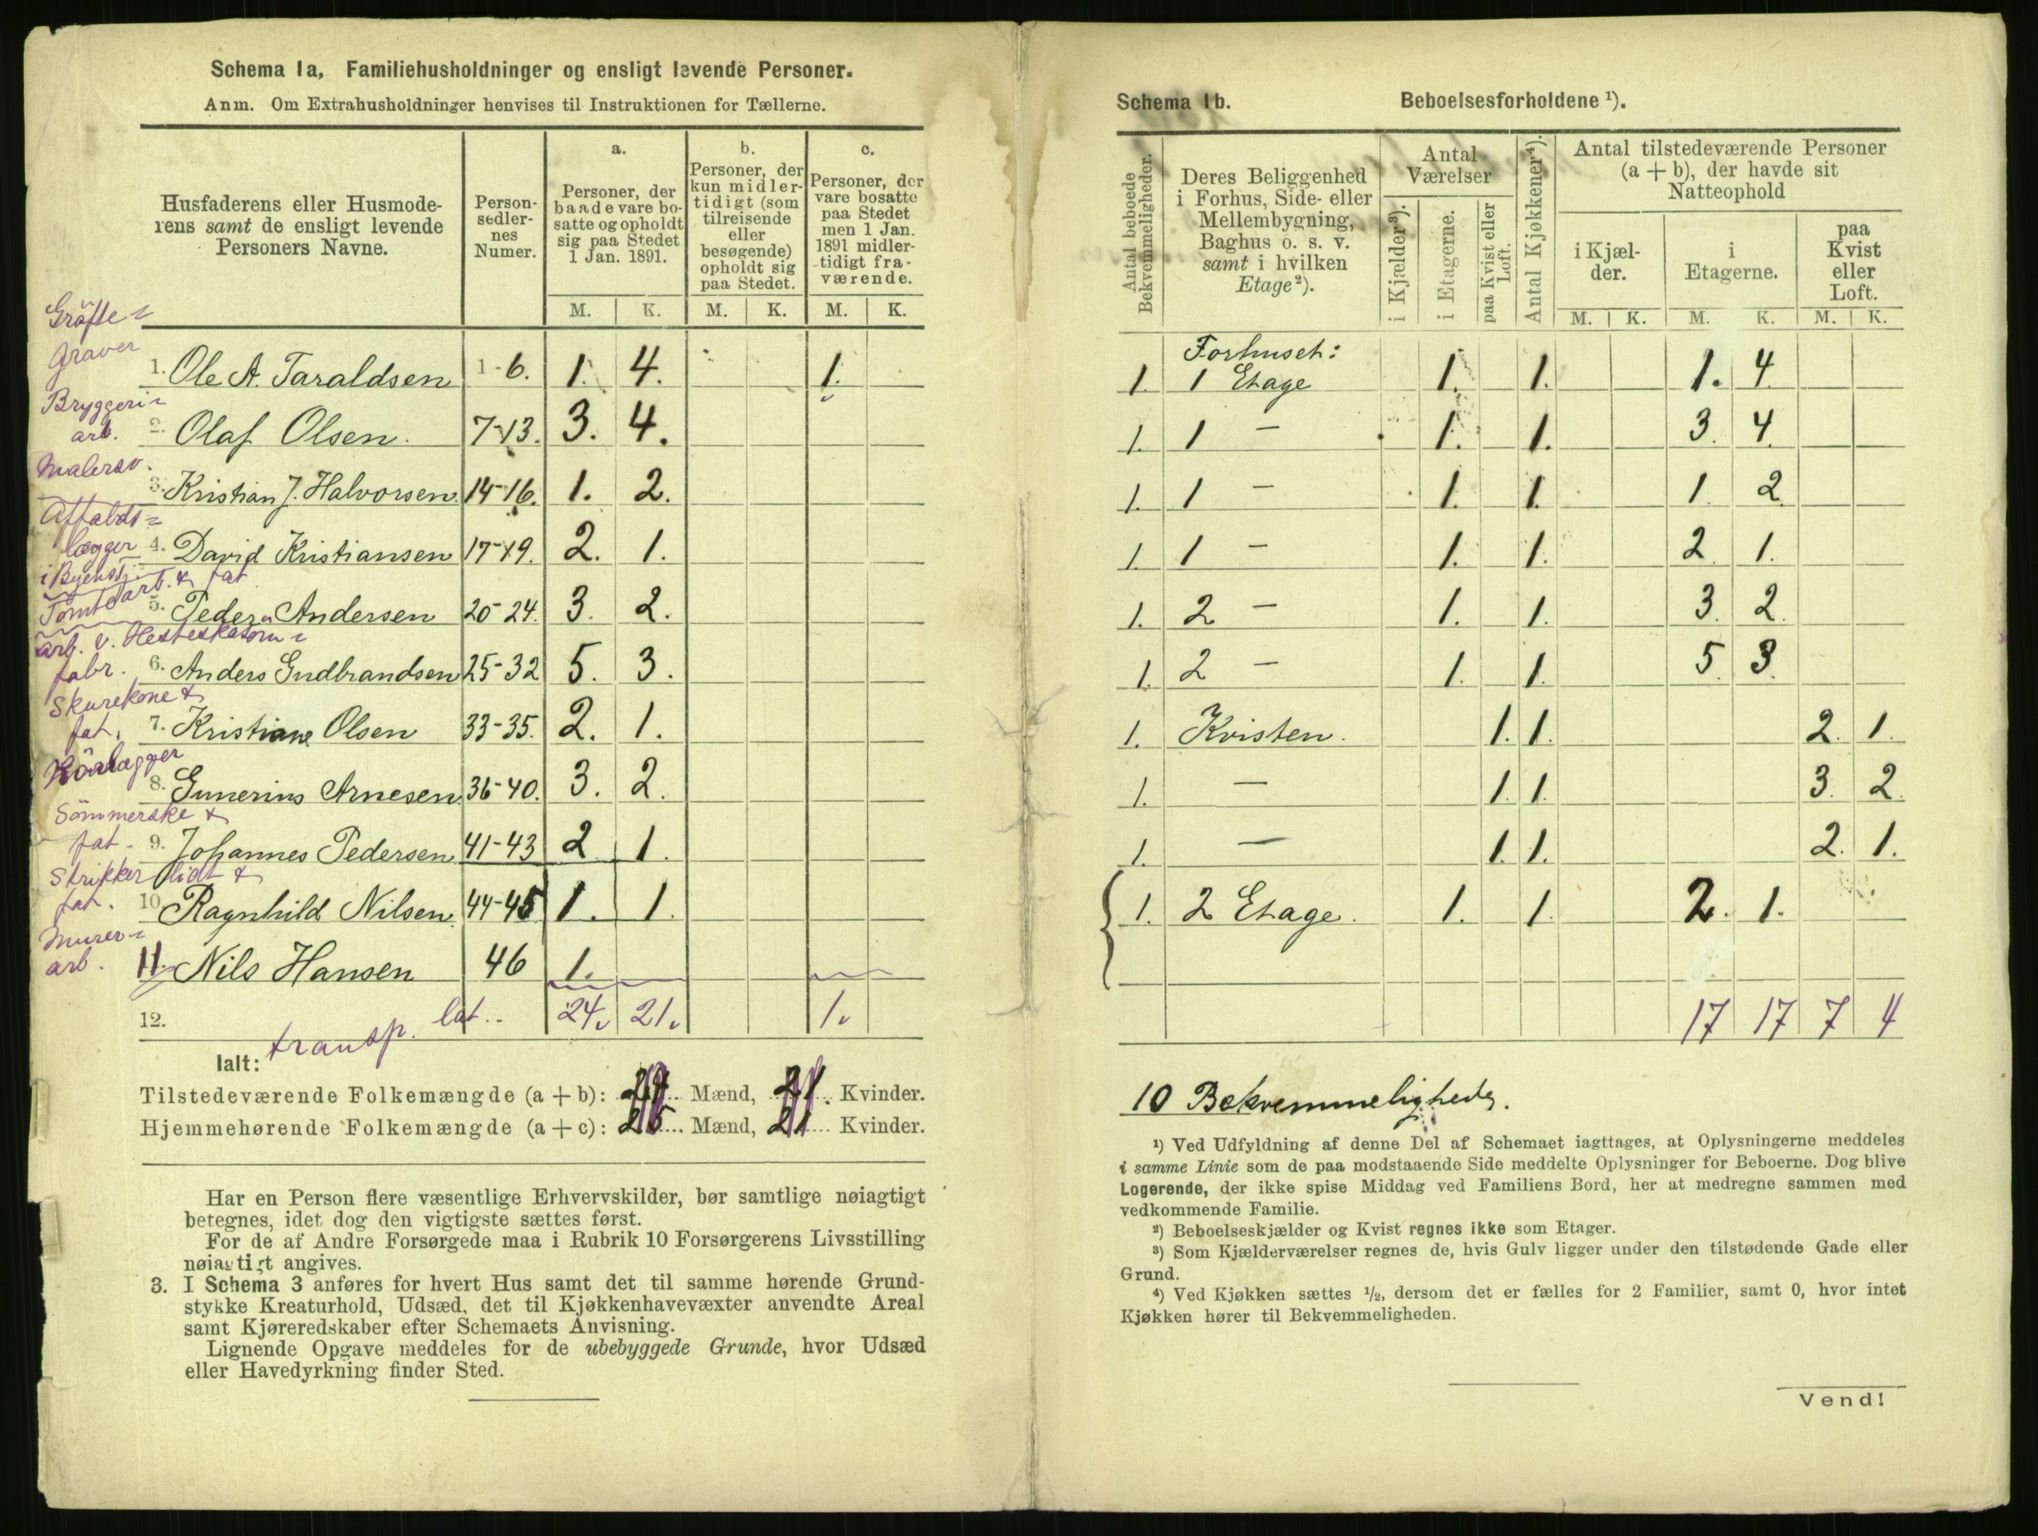 Schema 1a, Familiehusholdninger og ensligt levende Personer.
Anm. Om Extrahusholdninger henvises til Instruktionen for Tællerne.
Husfaderens eller Husmoderens samt de ensligt levende Personers Navne. | Personsedlernes Numer. | a. Personer, der baade vare bosatte og opholdt sig paa Stedet 1 Jan. 1891. | b. Personer, der kun midlertidigt (som tilreisende eller besøgende) opholdt sig paa Stedet. | c. Personer, der vare bosatte paa Stedet men 1 Jan. 1891 midlertidigt fraværende.
M. K. M. K. M. K.
Gröfte-
graver
1. Ole A. Taraldsen 1-6. 1. 4. 1.
Bryggeri-
arb.
2. Olaf Olsen. 7-13. 3. 4.
Malersv.
3. Kristian J. Halvorsen. 14-16. 1. 2.
Affalds-
lægger
4. David Kristiansen 17-19. 2. 1.
i Byens
Tomtearb. & fat
5. Peder Andersen 20-24. 3. 2.
arb. v. Hesteskosöm-
fabr.
6. Anders Gudbrandsen 25-32 5. 3.
Skurekone &
fat.
7. Kristiane Olsen 33-35. 2. 1.
Körlægger
8. Gunerius Arnesen 36-40. 3. 2.
Sömmerske &
fat.
9. Johannes Pedersen 41-43 2 1.
Strikker lidt &
fat.
10 Ragnhild Nilsen. 44-45 1. 1.
Murer-
arb.
11. Nils Hansen 46 1.
12. lat.. 24. 21. 1.
transp.
Ialt:
Tilstedeværende Folkemængde (a + b): 24 Mænd, 21. Kvinder.
Hjemmehørende Folkemængde (a + c): 25 Mænd, 21 Kvinder.
Har en Person flere væsentlige Erhvervskilder, bør samtlige nøiagtigt
betegnes, idet dog den vigtigste sættes først.
For de af Andre Forsørgede maa i Rubrik 10 Forsørgerens Livsstilling
nøiagtigt angives.
3. I Schema 3 anføres for hvert Hus samt det til samme hørende Grund-
stykke Kreaturhold, Udsæd, det til Kjøkkenhavevæxter anvendte Areal
samt Kjøreredskaber efter Schemaets Anvisning.
Lignende Opgave meddeles for de ubebyggede Grunde, hvor Udsæd
eller Havedyrkning finder Sted.
Schema 1b. Beboelsesforholdene ¹).
Antal beboede Bekvemmeligheder. | Deres Beliggenhed i Forhus, Side- eller Mellembygning, Baghus o. s. v. samt i hvilken Etage²). | Antal Værelser | i Kjælder³). | i Etagerne. | paa Kvist eller Loft. | Antal Kjøkkener⁴). | Antal tilstedeværende Personer (a + b), der havde sit Natteophold | i Kjælder. | i Etagerne. | paa Kvist eller Loft.
M. K. M. K. M. K.
Forhuset:
1. 1 Etage 1. 1. 1. 4
1. 1 — 1. 1. 3. 4.
1. 1 — 1. 1. 1. 2
1. 1 — 1. 1. 2 1.
1. 2 — 1. 1. 3. 2.
1. 2 — 1. 1. 5. 3.
1. Kvisten. 1. 1. 2. 1.
1. — 1. 1. 3. 2.
1. — 1. 1. 2. 1.
1. 2 Etage. 1. 1. 2. 1.
17 17 7 4
10 Bekvemmeligheder.
¹) Ved Udfyldning af denne Del af Schemaet iagttages, at Oplysningerne meddeles
i samme Linie som de paa modstaaende Side meddelte Oplysninger for Beboerne. Dog blive
Logerende, der ikke spise Middag ved Familiens Bord, her at medregne sammen med
vedkommende Familie.
²) Beboelseskjælder og Kvist regnes ikke som Etager.
³) Som Kjælderværelser regnes de, hvis Gulv ligger under den tilstødende Gade eller
Grund.
⁴) Ved Kjøkken sættes ½, dersom det er fælles for 2 Familier, samt 0, hvor intet
Kjøkken hører til Bekvemmeligheden.
Vend!